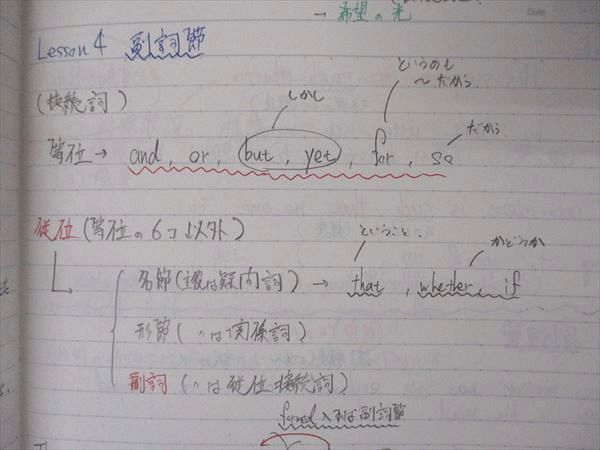 → 希望の光
Lesson 4 副詞節
というのも
〜だから
しかし
(接続詞)
だから
等位→ and, or, but, yet, for, so
従位(等位の6コ以外)
ということ、
かどうか
名節(主役は疑問詞)→ that, whether, if
形節(〃は関係詞)
副詞(〃は従位接続詞)
入れば副詞節